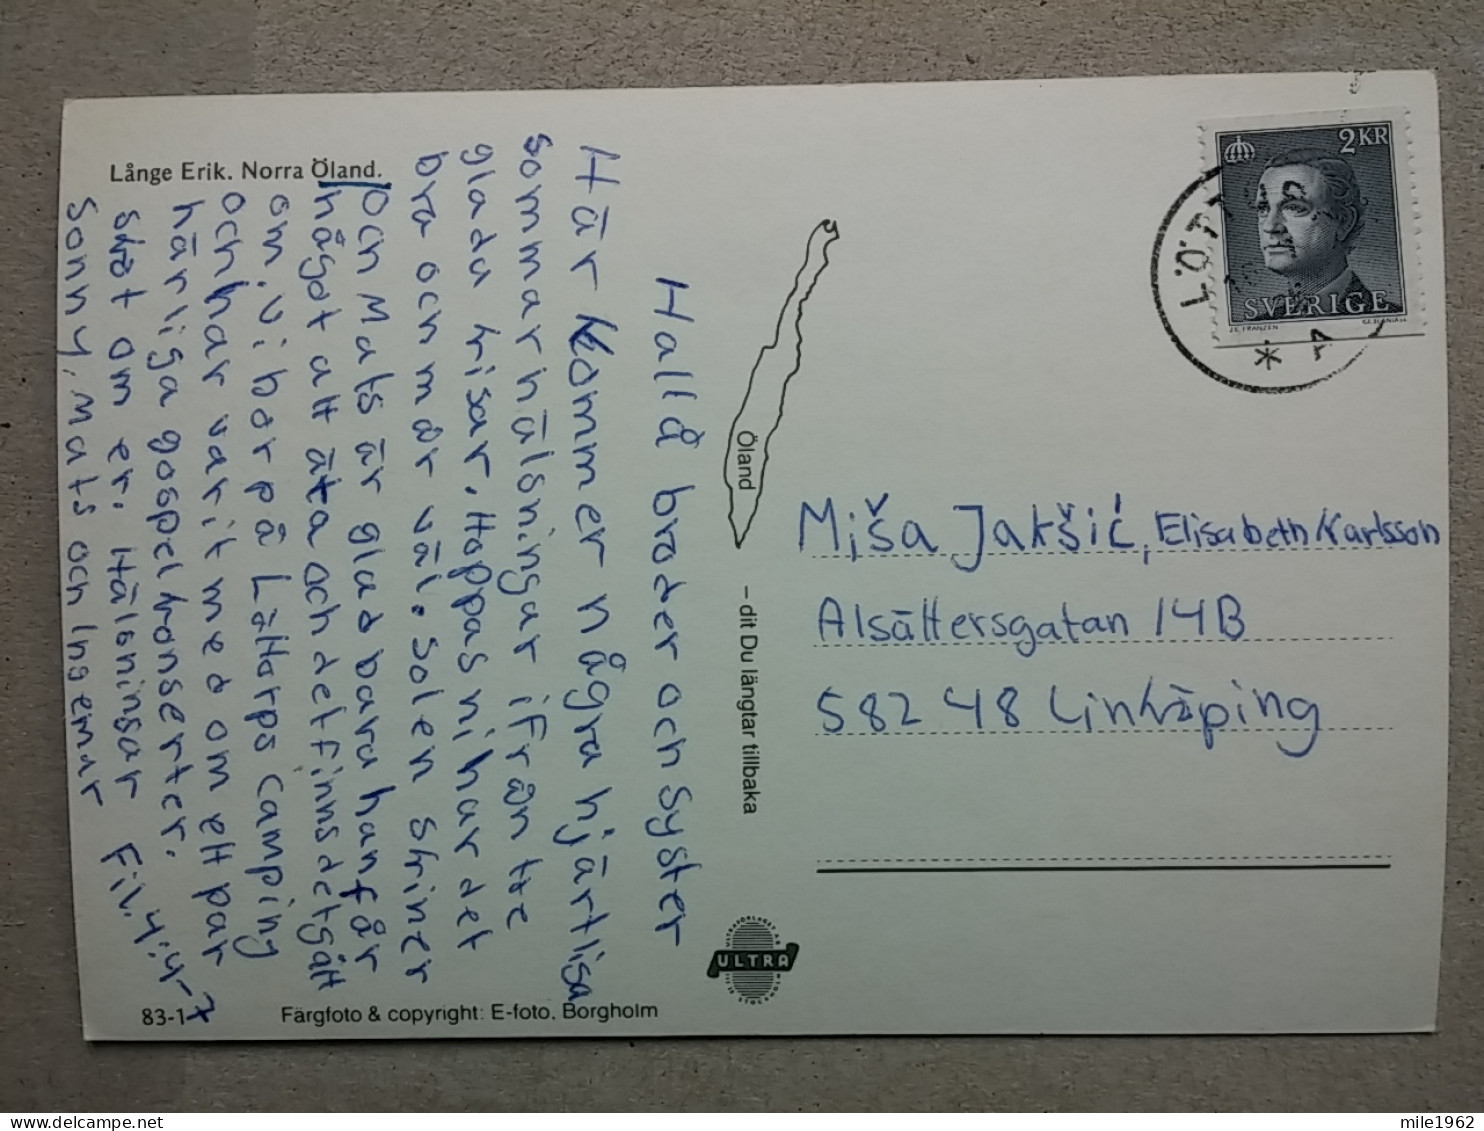 Långe Erik. Norra Öland.
Hallå broder och syster
Här kommer några hjärtliga
sommarhälsningar ifrån tre
glada grisar. Hoppas ni har det
bra och mår väl. Solen skiner
och Mats är glad bara han får
något att äta och det finns det gått
om. Vi bor på Löttorps camping
och har varit med om ett par
härliga gospelkonserter.
sköt om er. Hälsningar Fil. 4:4-7
Sonny, Mats och Ingemar
83-1
Färgfoto & copyright: E-foto, Borgholm
Öland
– dit Du längtar tillbaka
ULTRA
2 KR
SVERIGE
LÖTTORP
* A
Miša Jakšić, Elisabeth Karlsson
Alsättersgatan 14B
582 48 Linköping
mile1962